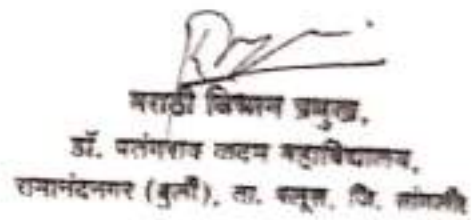 मराठी विभाग प्रमुख,
डॉ. पतंगराव कदम महाविद्यालय,
रामानंदनगर (बुर्ली), ता. पलूस, जि. सांगली